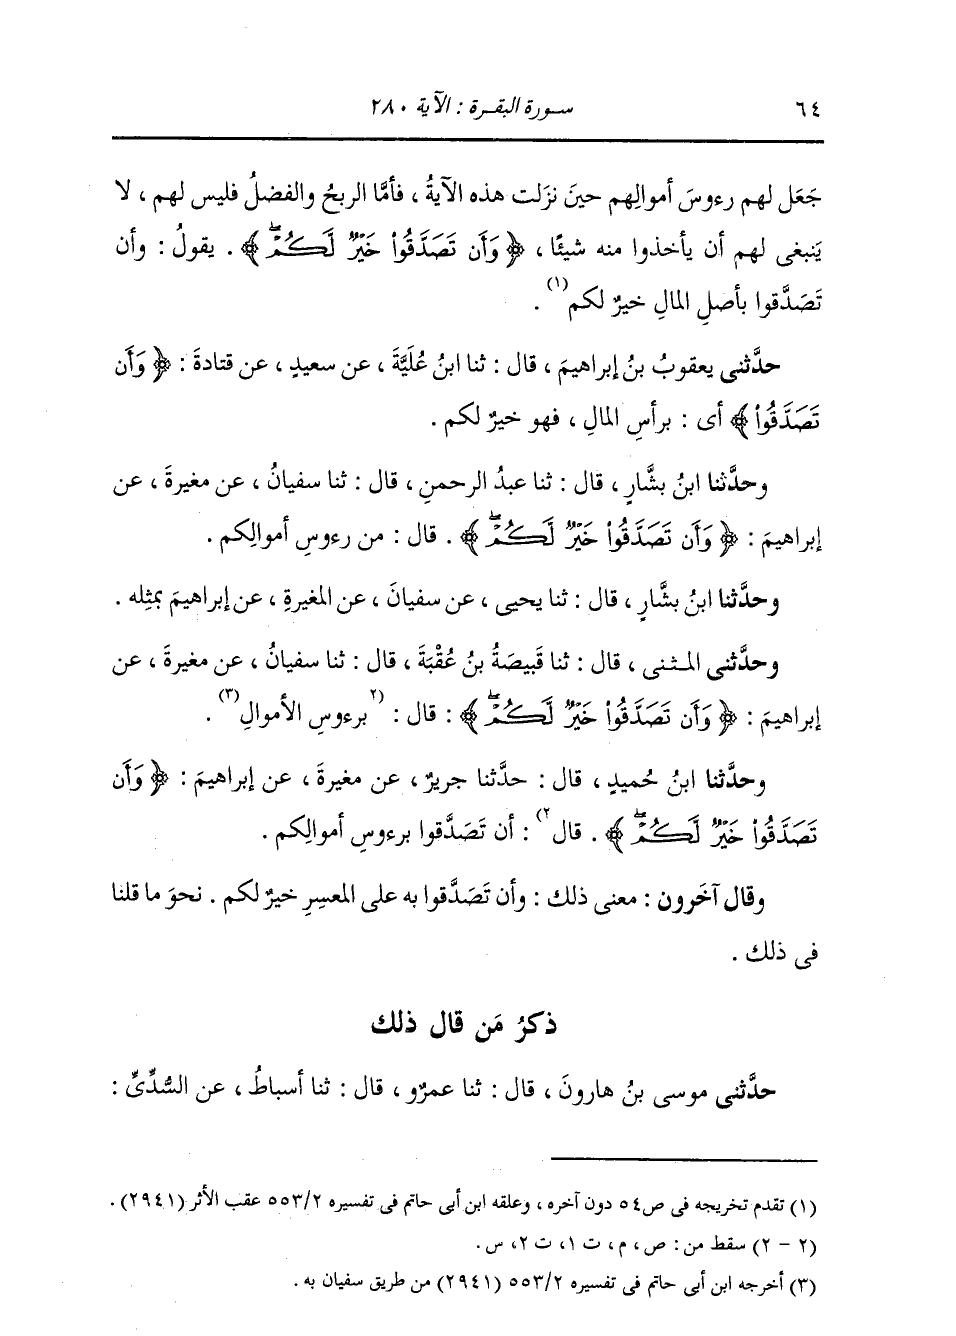 ٦٤ سورة البقرة : الآية ٢٨٠
جَعَل لهم رءوسَ أموالِهم حينَ نزَلت هذه الآيةُ ، فأمَّا الربحُ والفضلُ فليس لهم ، لا
يَنبغى لهم أن يأخذوا منه شيئًا ، ﴿ وَأَن تَصَدَّقُوا۟ خَيْرٌ لَّكُمْ ۖ ﴾ . يقولُ : وأن
تَصَدَّقوا بأصلِ المالِ خيرٌ لكم(١) .
حدَّثنى يعقوبُ بنُ إبراهيمَ ، قال : ثنا ابنُ عُلَيَّةَ ، عن سعيدٍ ، عن قتادةَ : ﴿ وَأَن
تَصَدَّقُوا۟ ﴾ أى : برأسِ المالِ ، فهو خيرٌ لكم .
وحدَّثنا ابنُ بشَّارٍ ، قال : ثنا عبدُ الرحمنِ ، قال : ثنا سفيانُ ، عن مغيرةَ ، عن
إبراهيمَ : ﴿ وَأَن تَصَدَّقُوا۟ خَيْرٌ لَّكُمْ ۖ ﴾ . قال : من رءوسِ أموالِكم .
وحدَّثنا ابنُ بشَّارٍ ، قال : ثنا يحيى ، عن سفيانَ ، عن المغيرةِ ، عن إبراهيمَ بمثِله .
وحدَّثنى المثنى ، قال : ثنا قَبِيصَةُ بنُ عُقْبَةَ ، قال : ثنا سفيانُ ، عن مغيرةَ ، عن
إبراهيمَ : ﴿ وَأَن تَصَدَّقُوا۟ خَيْرٌ لَّكُمْ ۖ ﴾ : قال : (٢برءوسِ الأموالِ(٣) .
وحدَّثنا ابنُ حُميدٍ ، قال : حدَّثنا جريرٌ ، عن مغيرةَ ، عن إبراهيمَ : ﴿ وَأَن
تَصَدَّقُوا۟ خَيْرٌ لَّكُمْ ۖ ﴾ . قال٢) : أن تَصَدَّقوا برءوسِ أموالِكم .
وقال آخَرون : معنى ذلك : وأن تَصَدَّقوا به على المعسِرِ خيرٌ لكم . نحوَ ما قلنا
فى ذلك .
ذكرُ مَن قال ذلك
حدَّثنى موسى بنُ هارونَ ، قال : ثنا عمرٌو ، قال : ثنا أسباطُ ، عن السُّدِّىِّ :
(١) تقدم تخريجه فى ص٥٤ دون آخره ، وعلقه ابن أبى حاتم فى تفسيره ٥٥٣/٢ عقب الأثر (٢٩٤١) .
(٢ - ٢) سقط من : ص ، م ، ت ١، ت ٢، س .
(٣) أخرجه ابن أبى حاتم فى تفسيره ٥٥٣/٢ (٢٩٤١) من طريق سفيان به .